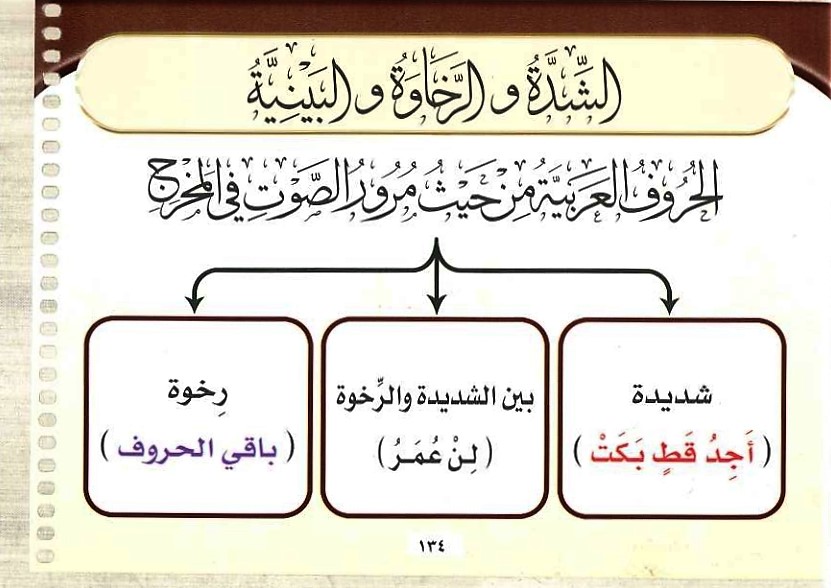 الشِّدَّةُ والرَّخَاوَةُ والبَيْنِيَّةُ
الحُرُوفُ العَرَبِيَّةُ مِنْ حَيْثُ مُرُورُ الصَّوْتِ فِي المَخْرَجِ
شديدة
(أَجِدُ قَطٍ بَكَتْ)
بين الشديدة والرِّخوة
(لِنْ عُمَرُ)
رِخوة
(باقي الحروف)
١٣٤